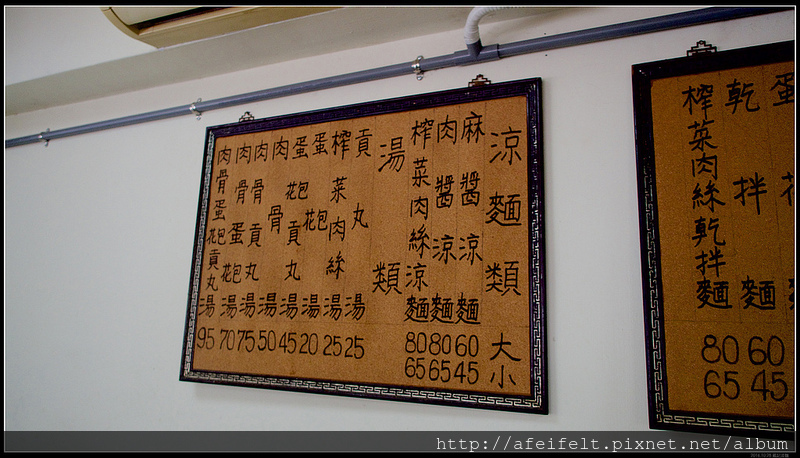 涼麵類 大 小
麻醬涼麵 60 45
肉醬涼麵 80 65
榨菜肉絲涼麵 80 65
湯類
貢丸湯 25
榨菜肉絲湯 25
蛋花包湯 20
蛋花包貢丸湯 45
肉骨湯 50
肉骨貢丸湯 75
肉骨蛋花包湯 70
肉骨蛋花包貢丸湯 95
乾拌麵 60 45
榨菜肉絲乾拌麵 80 65
http://afeifelt.pixnet.net/album